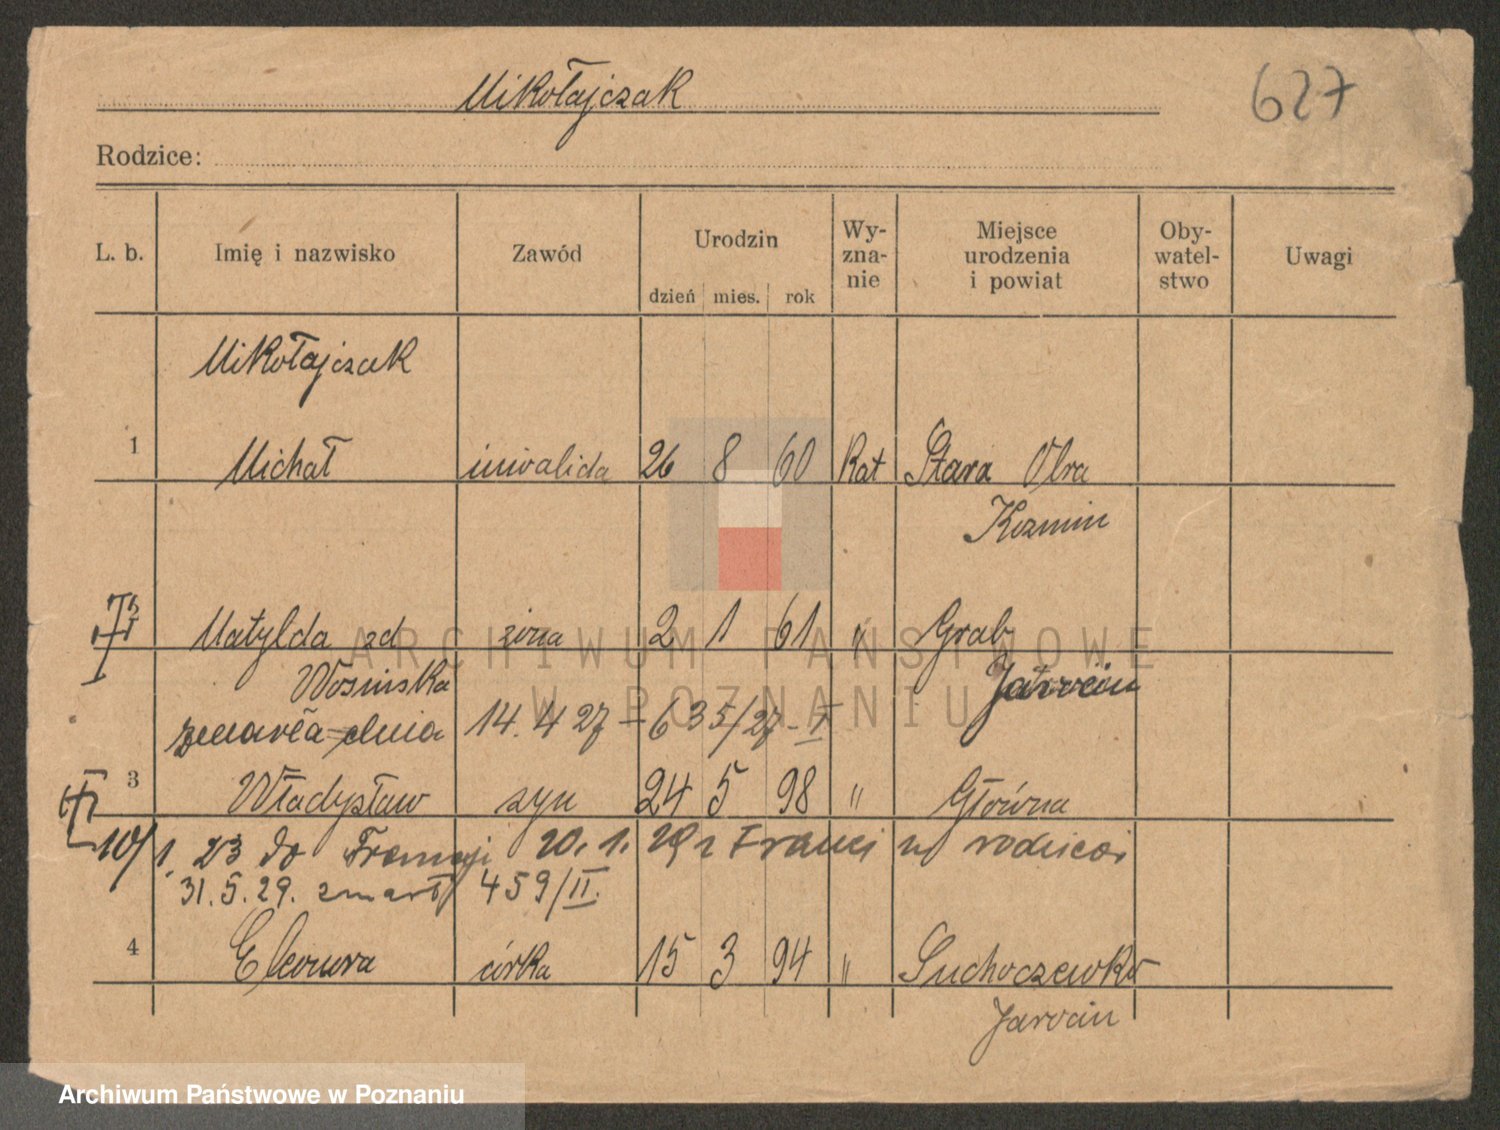 Mikołajczak
627
Rodzice:
L. b. Imię i nazwisko Zawód Urodzin dzień mies. rok Wy-zna-nie Miejsce urodzenia i powiat Oby-watel-stwo Uwagi
Mikołajczak
1 Michał inwalida 26 8 60 Kat Stara Obra
Kozmin
Matylda zd żona 2 1 61 " Grab
Wosinska Jarocin
zmarła dnia 14. 4 27 - 635/27 - II
3 Władysław syn 24 5 98 " Główna
10/1. 23 do Francji 20. 1. 29 z Francji rodzicoi
31. 5. 29. zmarł 459/II.
4 Eleonora córka 15 3 94 " Suchoczewko
Jarocin
ARCHIWUM PAŃSTWOWE
W POZNANIU
Archiwum Państwowe w Poznaniu